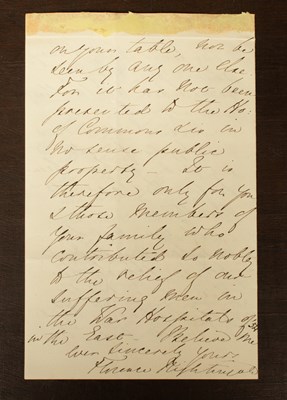 on your table, nor be
seen by any one else
For it has not been
presented to the Ho:
of Commons & is in
no sense public
property – It is
therefore only for you
& those members of
your family who
contributed so nobly
to the relief of our
suffering men in
the War Hospitals of
in the East Believe me
ever sincerely yours
Florence Nightingale